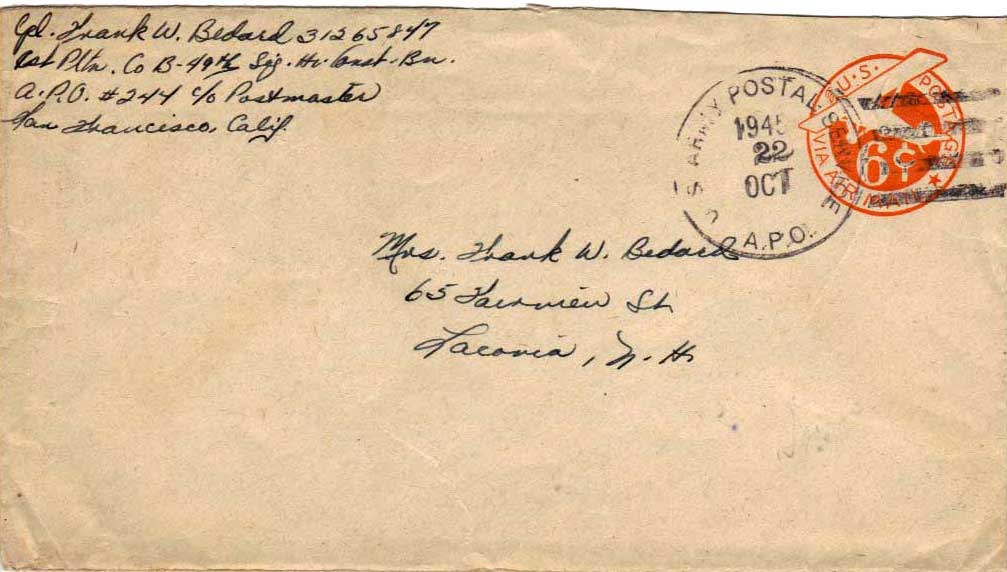 Cpl. Frank W. Bedard 31265847
1st Pltn. Co B-49th Sig. Hv. Const. Bn.
A.P.O. #244 c/o Postmaster
San Francisco, Calif.
U.S. ARMY POSTAL SERVICE
1945
22
OCT
A.P.O.
U.S. POSTAGE
6¢
VIA AIR MAIL
Mrs. Frank W. Bedard
65 Fairview St.
Laconia, N.H.